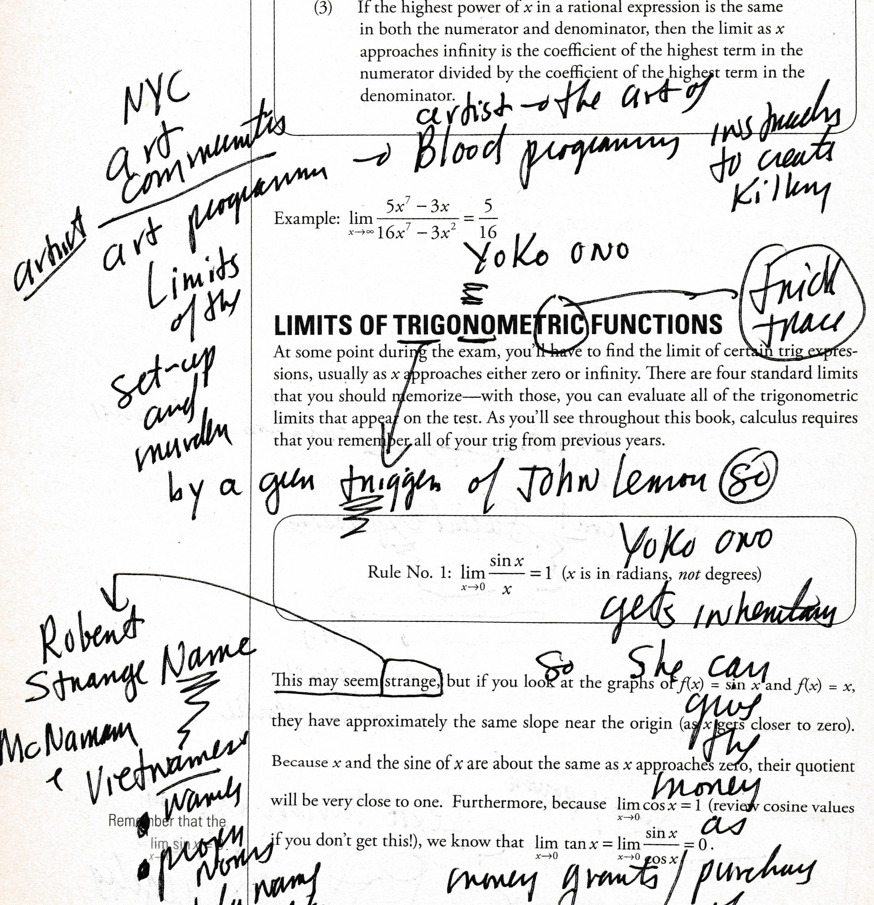 (3) If the highest power of x in a rational expression is the same
in both the numerator and denominator, then the limit as x
approaches infinity is the coefficient of the highest term in the
numerator divided by the coefficient of the highest term in the
denominator.
NYC
art
communitis
artist → the art of
→ Blood programming
instructs
to create
Killing
artist
art programm
Example: lim x→∞ 5x⁷ − 3x / 16x⁷ − 3x² = 5/16
Limits
of the
set-up
and
murder
Yoko ONO
trick
trace
LIMITS OF TRIGONOMETRIC FUNCTIONS
At some point during the exam, you'll have to find the limit of certain trig expres-
sions, usually as x approaches either zero or infinity. There are four standard limits
that you should memorize—with those, you can evaluate all of the trigonometric
limits that appear on the test. As you'll see throughout this book, calculus requires
that you remember all of your trig from previous years.
by a gun trigger of John Lemon so
Yoko ONO
Rule No. 1: lim x→0 sin x / x = 1 (x is in radians, not degrees)
gets
Robert
Strange Name
McNamara
Vietnamese
Names
proxy
nouns
names
So She can
This may seem strange, but if you look at the graphs of f(x) = sin x and f(x) = x,
give
they have approximately the same slope near the origin (as x gets closer to zero).
the
Because x and the sine of x are about the same as x approaches zero, their quotient
money
will be very close to one. Furthermore, because lim x→0 cos x = 1 (review cosine values
as
Remember that the
lim sin x
x→0
if you don't get this!), we know that lim x→0 tan x = lim x→0 sin x / cos x = 0.
money grants / purchas